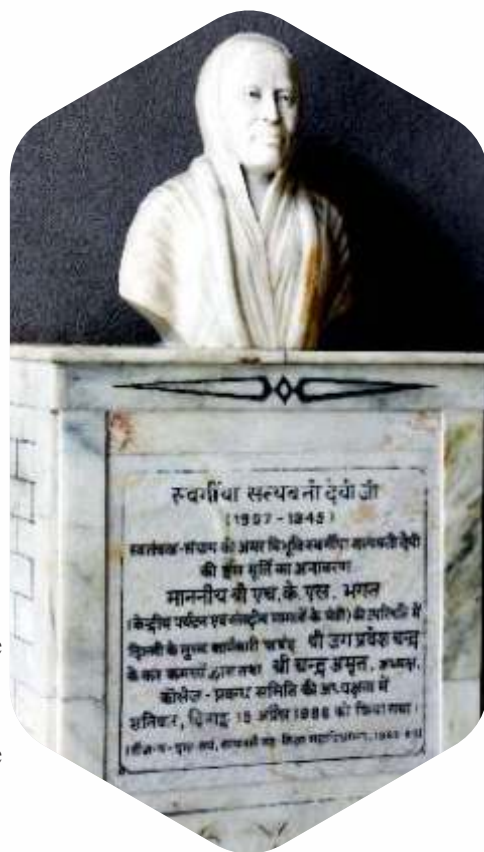 स्वर्गीया सत्यवती देवी जी
(1907 - 1945)
स्वतंत्रता-संग्राम की अमर विभूति स्वर्गीया सत्यवती देवी
की इस मूर्ति का अनावरण
माननीय श्री एच. के. एल. भगत
(केन्द्रीय पर्यटन एवं संसदीय मामलों के मंत्री) की उपस्थिति में
दिल्ली के मुख्य कार्यकारी पार्षद श्री जग प्रवेश चन्द्र
के कर कमलों द्वारा तथा श्री चन्द्र अमृत, अध्यक्ष,
कॉलेज - प्रबन्ध समिति की अध्यक्षता में
शनिवार, दिनाङ्क अप्रैल 1986 को किया गया।
सत्यवती सह शिक्षा महाविद्यालय,